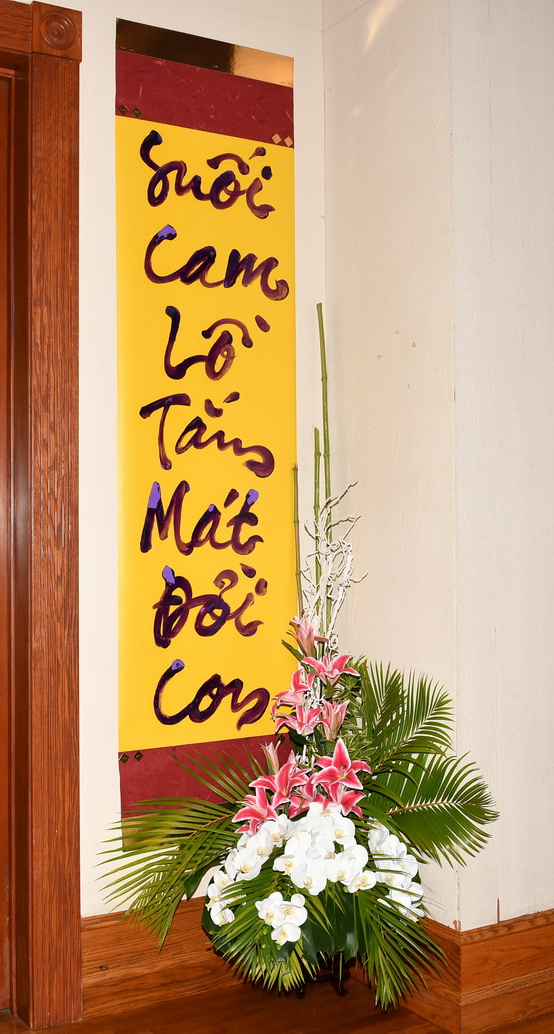 Suối
Cam
Lồ
Tắm
Mát
Đời
Con